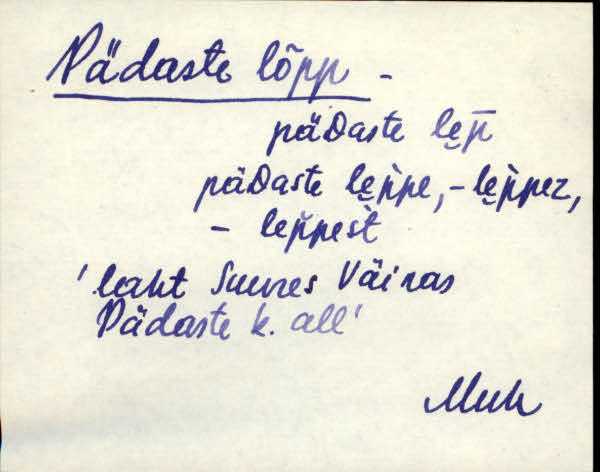 Pädaste lõpp -
päDaste le̮p̄
päDaste le̮p̀pe, - le̮p̀pez,
- le̮p̀pest̀
'laht Suures Väinas
Pädaste k. all'
Muh